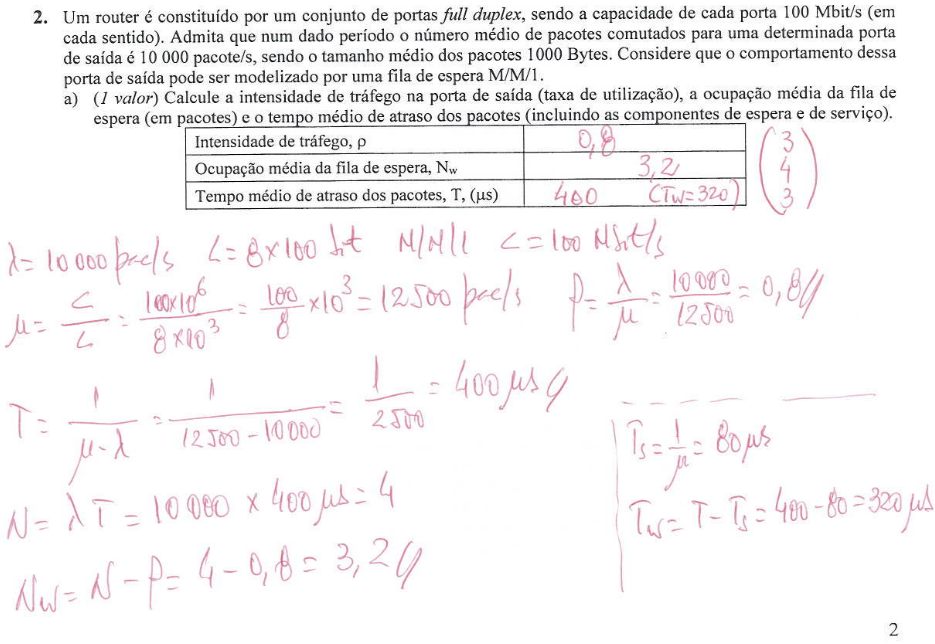 2. Um router é constituído por um conjunto de portas full duplex, sendo a capacidade de cada porta 100 Mbit/s (em
cada sentido). Admita que num dado período o número médio de pacotes comutados para uma determinada porta
de saída é 10 000 pacote/s, sendo o tamanho médio dos pacotes 1000 Bytes. Considere que o comportamento dessa
porta de saída pode ser modelizado por uma fila de espera M/M/1.
a) (1 valor) Calcule a intensidade de tráfego na porta de saída (taxa de utilização), a ocupação média da fila de
espera (em pacotes) e o tempo médio de atraso dos pacotes (incluindo as componentes de espera e de serviço).
Intensidade de tráfego, ρ 0,8 3
Ocupação média da fila de espera, Nw 3,2 4
Tempo médio de atraso dos pacotes, T, (μs) 400 (Tw=320) 3
λ= 10 000 pac/s L=8×100 bit M/M/1 C=100 Mbit/s
μ= C/L = 100×10^6/8×10^3 = 100/8 ×10^3 = 12500 pac/s ρ= λ/μ = 10 000/12500 = 0,8//
T= 1/μ-λ = 1/12500-10000 = 1/2500 = 400 μs //
Ts=1/μ= 80 μs
N= λT = 10 000 × 400 μs = 4
Tw= T-Ts = 400-80 = 320 μs
Nw= N-ρ= 4-0,8 = 3,2//
2